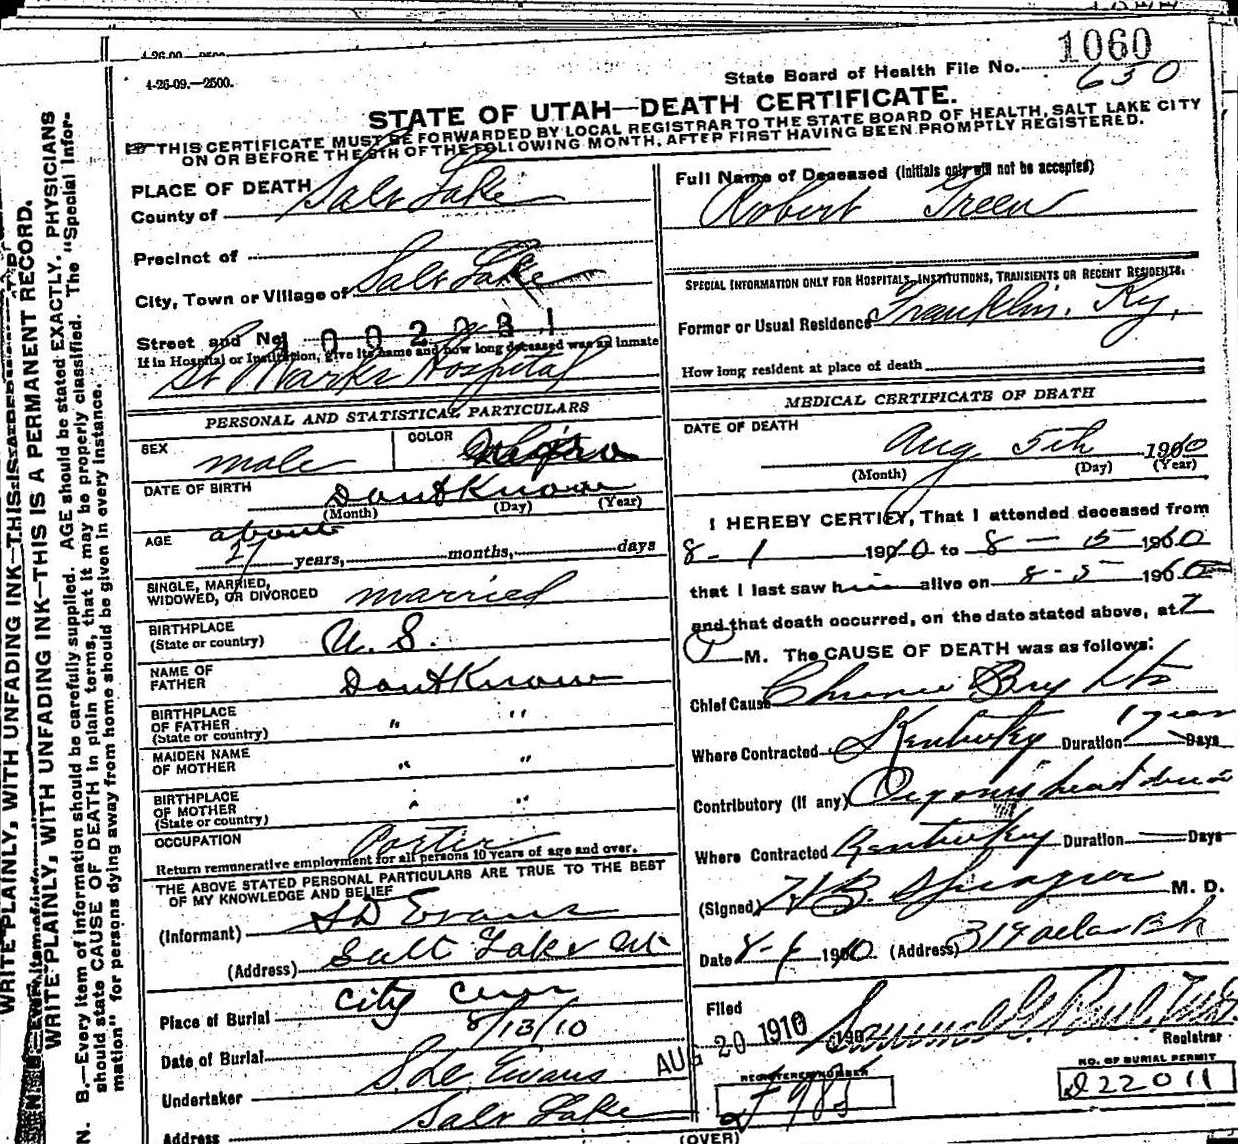 4-26-09.—2500.
1060
State Board of Health File No. 630
STATE OF UTAH—DEATH CERTIFICATE.
THIS CERTIFICATE MUST BE FORWARDED BY LOCAL REGISTRAR TO THE STATE BOARD OF HEALTH, SALT LAKE CITY
ON OR BEFORE THE 5TH OF THE FOLLOWING MONTH, AFTER FIRST HAVING BEEN PROMPTLY REGISTERED.
PLACE OF DEATH
County of Salt Lake
Precinct of
City, Town or Village of Salt Lake
Street and No.
If in Hospital or Institution, give its name and how long deceased was an inmate
St Marks Hospital
PERSONAL AND STATISTICAL PARTICULARS
SEX male
COLOR
DATE OF BIRTH Dont Know
(Month) (Day) (Year)
AGE about 27 years, months, days
SINGLE, MARRIED,
WIDOWED, OR DIVORCED married
BIRTHPLACE
(State or country) U. S.
NAME OF
FATHER Dont Know
BIRTHPLACE
OF FATHER " "
(State or country)
MAIDEN NAME
OF MOTHER " "
BIRTHPLACE
OF MOTHER " "
(State or country)
OCCUPATION Porter
Return remunerative employment for all persons 10 years of age and over.
THE ABOVE STATED PERSONAL PARTICULARS ARE TRUE TO THE BEST
OF MY KNOWLEDGE AND BELIEF
(Informant) S D Evans
(Address) Salt Lake Ut
Place of Burial City Cem
Date of Burial 8/13/10
Undertaker S. D. Evans
Address Salt Lake
Full Name of Deceased (Initials only will not be accepted)
Robert Green
SPECIAL INFORMATION ONLY FOR HOSPITALS, INSTITUTIONS, TRANSIENTS OR RECENT RESIDENTS.
Former or Usual Residence Franklin, Ky,
How long resident at place of death
MEDICAL CERTIFICATE OF DEATH
DATE OF DEATH
Aug 5th 1910
(Month) (Day) (Year)
I HEREBY CERTIFY, That I attended deceased from
8-1 1910 to 8-5 1910
that I last saw him alive on 8-5 1910
and that death occurred, on the date stated above, at 7
P M. The CAUSE OF DEATH was as follows:
Chief Cause Chronic Brights
Where Contracted Kentucky Duration 1 year Days
Contributory (If any) Organic heart
Where Contracted Kentucky Duration Days
(Signed) M. D.
Date 1910 (Address) 319
Filed
AUG 20 1910
Registrar
REGISTERED NUMBER
NO. OF BURIAL PERMIT
D22011
(OVER)
WRITE PLAINLY, WITH UNFADING INK—THIS IS A PERMANENT RECORD.
N. B.—Every item of information should be carefully supplied. AGE should be stated EXACTLY. PHYSICIANS
should state CAUSE OF DEATH in plain terms, that it may be properly classified. The "Special Infor-
mation" for persons dying away from home should be given in every instance.